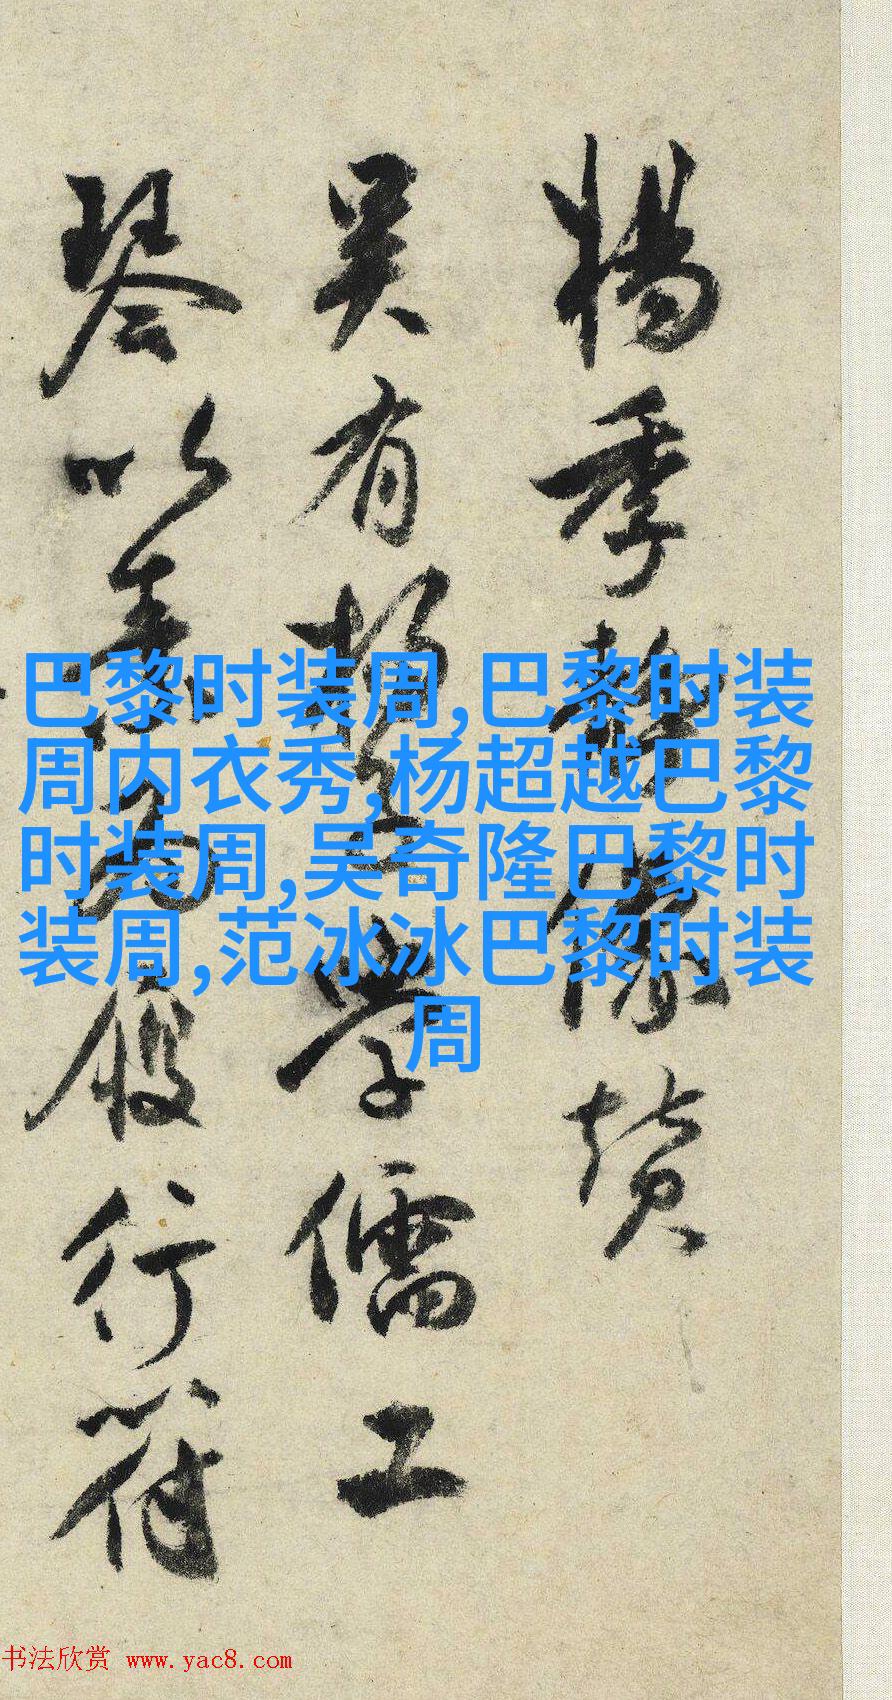 楊季靜像赞
吴有楊生學儒工
琴以履行符
巴黎时装周,巴黎时装
周内衣秀,杨超越巴黎
时装周,吴奇隆巴黎时
装周,范冰冰巴黎时装
周
书法欣赏 www.yac8.com